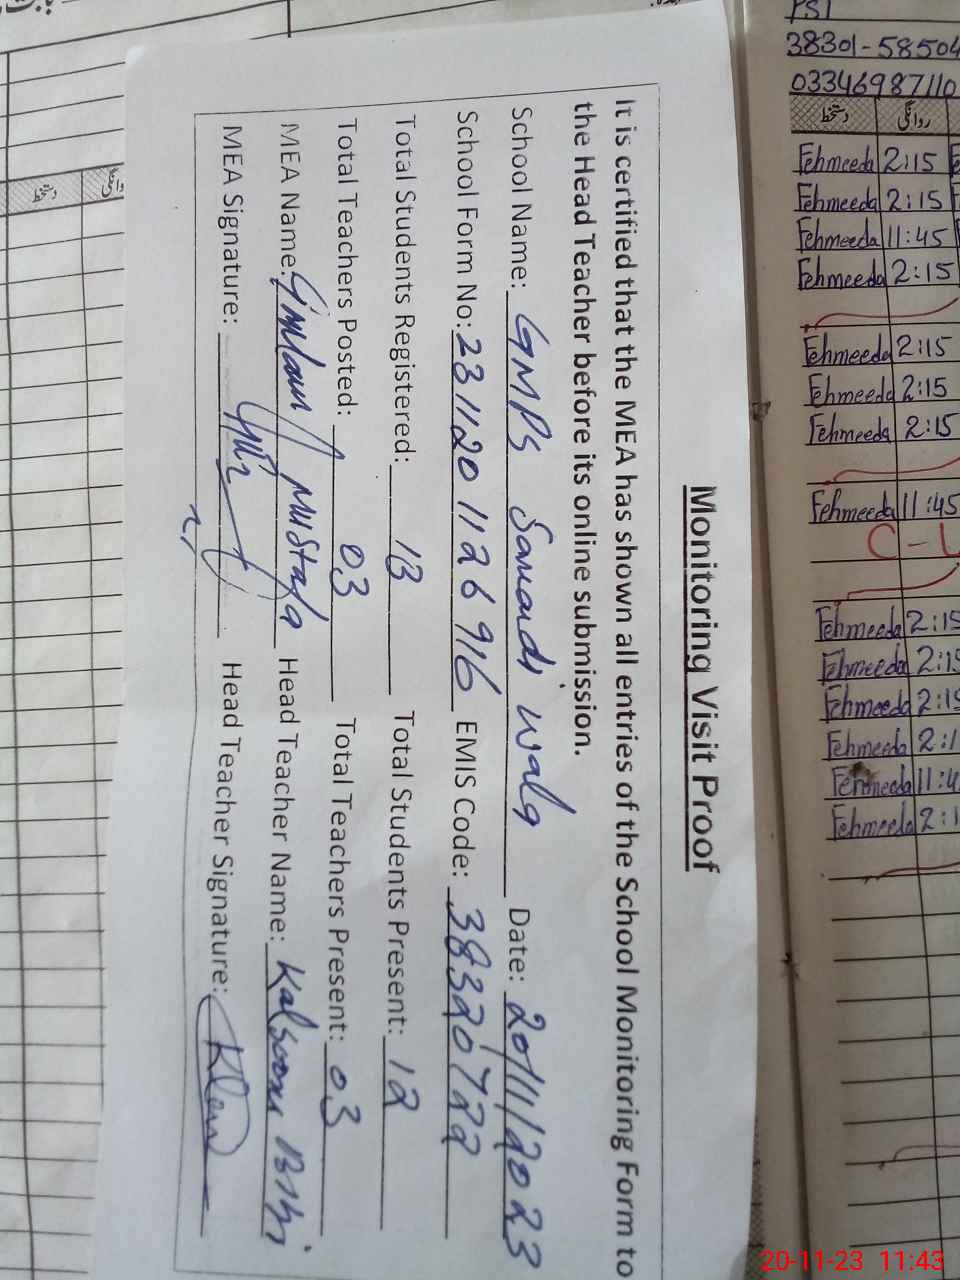 Monitoring Visit Proof
It is certified that the MEA has shown all entries of the School Monitoring Form to
the Head Teacher before its online submission.
School Name: GMPS Sanadi wala Date: 20/11/2023
School Form No: 2311201126916 EMIS Code: 38320722
Total Students Registered: 13 Total Students Present: 12
Total Teachers Posted: 03 Total Teachers Present: 03
MEA Name: Ghulam Mustafa Head Teacher Name: Kalsoom Bibi
MEA Signature: Head Teacher Signature:
PST
38301-58504
03346987110
دستخط روانگی
Fehmeeda 2:15
Fehmeeda 2:15
Fehmeeda 11:45
Fehmeeda 2:15
Fehmeeda 2:15
Fehmeeda 2:15
Fehmeeda 2:15
Fehmeeda 11:45
C-L
Fehmeeda 2:15
Fehmeeda 2:15
Fehmeeda 2:15
Fehmeeda 2:1
Fehmeeda 11:4
Fehmeeda 2:1
دستخط
20-11-23 11:43